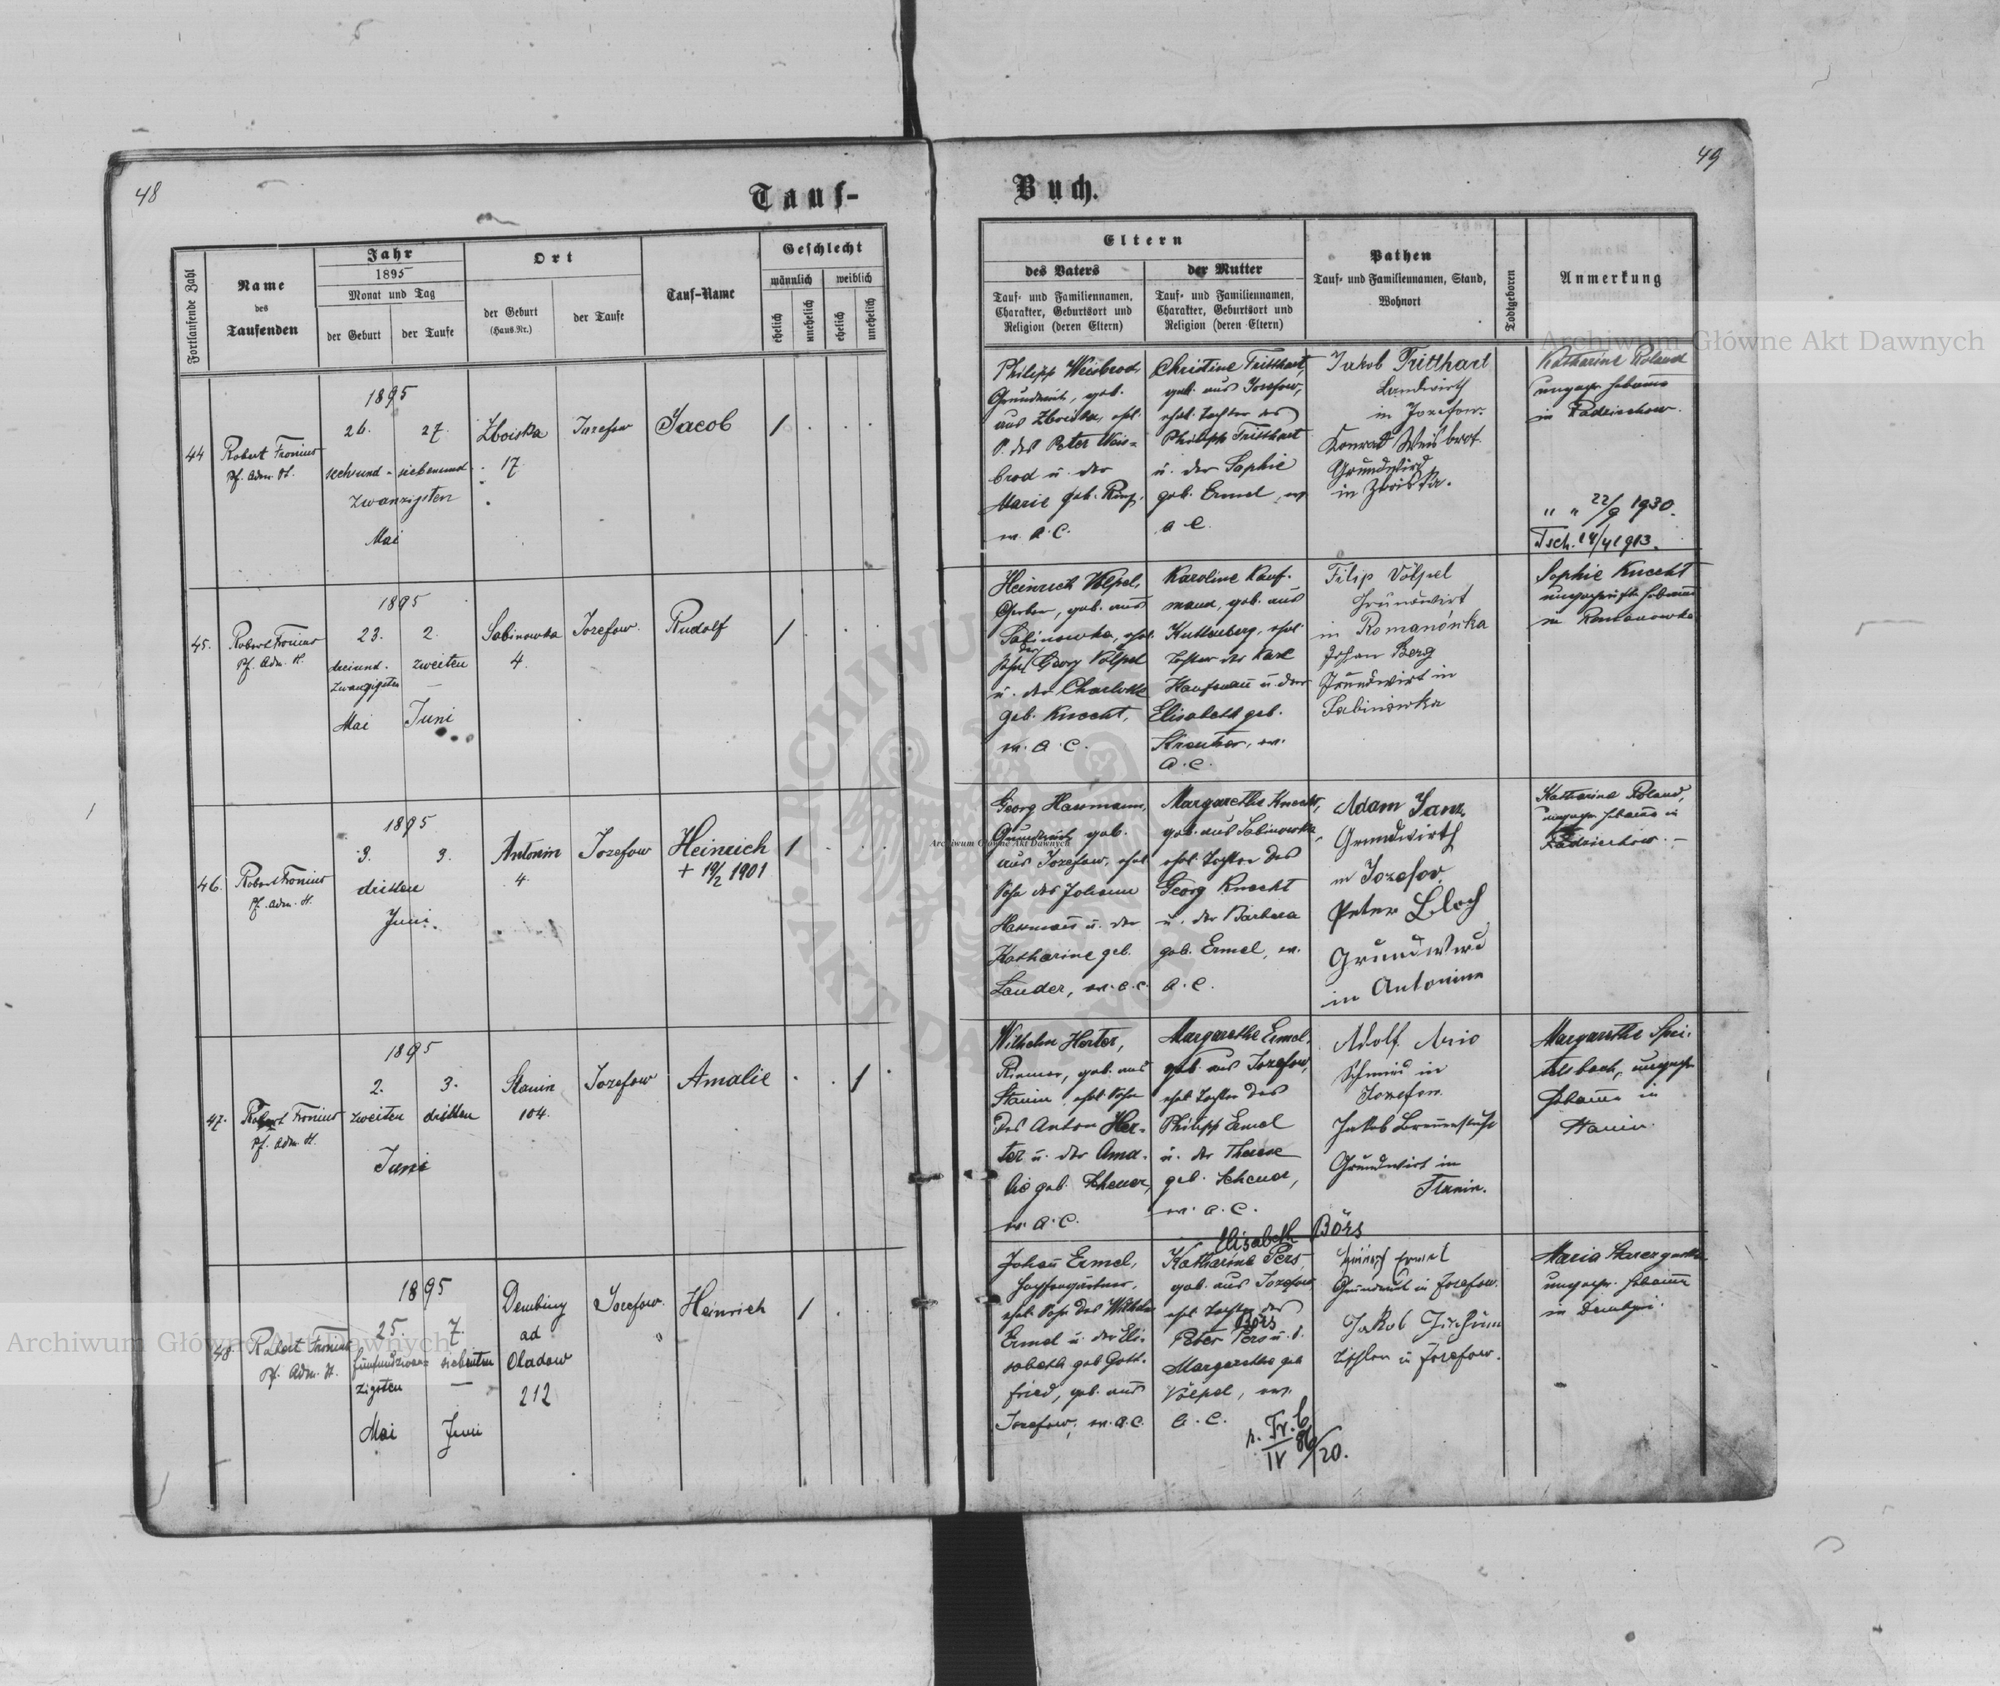 48
Tauf-
Fortlaufende Zahl
Name
des
Taufenden
Jahr
1895
Monat und Tag
der Geburt
der Taufe
Ort
der Geburt
(Haus-Nr.)
der Taufe
Tauf-Name
Geschlecht
männlich
weiblich
ehelich
unehelich
ehelich
unehelich
44
Robert Fronius
Pf. Adm. H.
1895
26. 27.
sechsund- siebenund-
zwanzigsten
Mai
Zboiska
17
Josefow
Jacob
1
45.
Robert Fronius
Pf. Adm. H.
1895
23. 2.
dreiund- zweiten
zwanzigsten
Mai Juni
Sabinowka
4.
Jozefow.
Rudolf
1
46.
Robert Fronius
Pf. Adm. H.
1895
3. 3.
dritten
Juni.
Antonin
4.
Jozefow
Heinrich
+ 19/2 1901
1
47.
Robert Fronius
Pf. Adm. H.
1895
2. 3.
zweiten dritten
Juni
Stanin
104.
Jozefow
Amalie
1
48.
Robert Fronius
Pf. Adm. H.
1895
25. 7.
fünfundzwan- siebenten
zigsten
Mai Juni
Dembiny
ad
Oladow
212
Jozefow.
Heinrich
1
49
Buch.
Eltern
des Vaters
Tauf- und Familiennamen,
Charakter, Geburtsort und
Religion (deren Eltern)
der Mutter
Tauf- und Familiennamen,
Charakter, Geburtsort und
Religion (deren Eltern)
Pathen
Tauf- und Familiennamen, Stand,
Wohnort
Todtgeboren
Anmerkung
Philipp Weisbrod,
Grundwirt, geb.
aus Zboiska, ehel.
S. des Peter Weis-
brod u. der
Marie geb.
ev. A. C.
Christine Tritthart,
geb. aus Josefow,
ehel. Tochter des
Philipp Tritthart
u. der Sophie
geb. Ermel, ev.
A C.
Jakob Tritthart
Landwirth
in Jozefow.
Konrad Weisbrot
Grundwird
in Zboiska.
Katharine Roland
ungepr. Hebamme
in Radziechow.
" " 22/9 1930.
Tsch. 14/4 1913.
Heinrich Völpel,
Gerber, geb. aus
Sabinowka, ehel.
Sohn des Georg Völpel
u. der Charlotte
geb. Knecht,
ev. A. C.
Karoline Kauf-
mann, geb. aus
Kuttenberg, ehel.
Tochter des Karl
Kaufmann u. der
Elisabeth geb.
ev.
A. C.
Filip Völpel
Grundwirt
in Romanówka
Johan Berg
Grundwirt in
Sabinowka
Sophie Knecht
ungeprüfte Hebamme
in Romanowka
Georg Hassmann,
Grundwirt, geb.
aus Jozefow, ehel.
Sohn des Johann
Hassmann u. der
Katharine geb.
Lauder, ev. A. C.
Margarethe Knecht,
geb. aus Sabinowka,
ehel. Tochter des
Georg Knecht
u. der Barbara
geb. Ermel, ev.
A. C.
Adam Janz
Grundwirth
in Jozefov
Peter Bloch
Grundwird
in Antonin
Katharine Roland,
ungepr. Hebamme in
Radziechow.
Wilhelm Herter,
Riemer, geb. aus
Stanin, ehel. Sohn
des Anton Her-
ter u. der Ama-
lie geb. Scheuer,
ev. A. C.
Margarethe Ermel,
geb. aus Jozefow,
ehel. Tochter des
Philipp Ermel
u. der Therese
geb. Scheuer,
ev. A. C.
Adolf
Schmied in
Jozefow
Jakob
Grundwirt in
Stanin.
Margarethe Spei-
ungepr.
Hebamme in
Stanin.
Johann Ermel,
ehel. Sohn des Wilhelm
Ermel u. der Eli-
sabeth geb. Gott-
fried, geb. aus
Jozefow, ev. A. C.
Elisabeth Börs
Katharina Pers,
geb. aus Jozefow,
ehel. Tochter des
Börs
Peter Pers u. d.
Margarethe geb
Völpel, ev.
A. C.
Ermel
Grundwirt in Josefow.
Jakob
Tischler in Josefow.
Maria
ungepr. Hebamme
in Dembiny.
Archiwum Główne Akt Dawnych
Archiwum Główne Akt Dawnych
Archiwum Główne Akt Dawnych